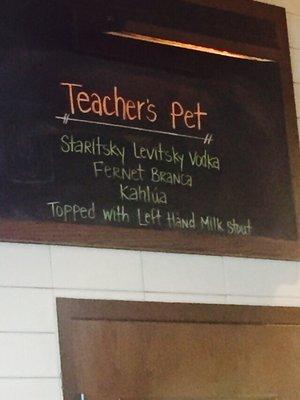 Teacher's Pet
Staritsky Levitsky Vodka
Fernet Branca
Kahlúa
Topped with Left Hand Milk Stout